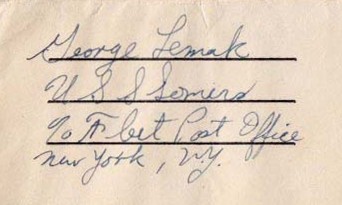 George Lemak
U S S Somers
c/o Fleet Post Office
New York, N.Y.